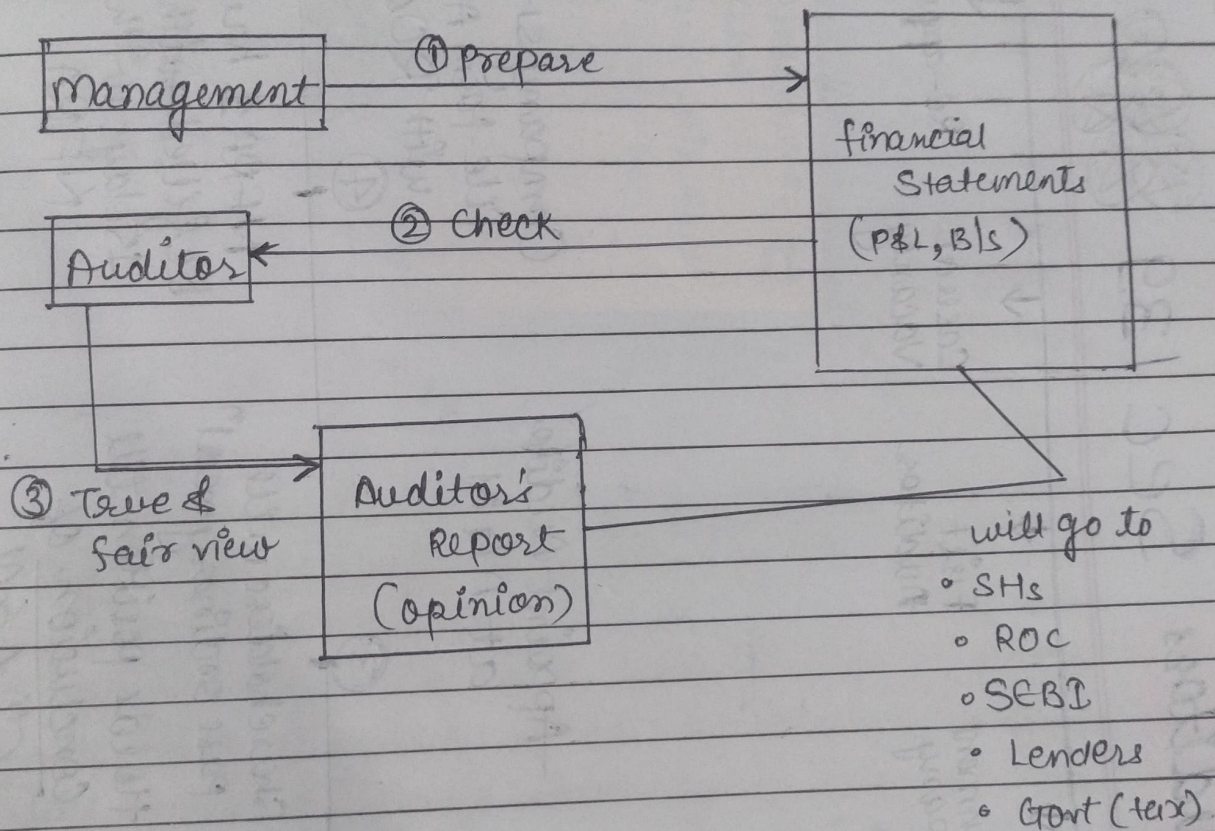 Management
① Prepare
financial
Statements
(P&L, B/s)
② Check
Auditor
③ True &
fair view
Auditor's
Report
(opinion)
will go to
• SHs
• ROC
• SEBI
• Lenders
• Govt (tax)